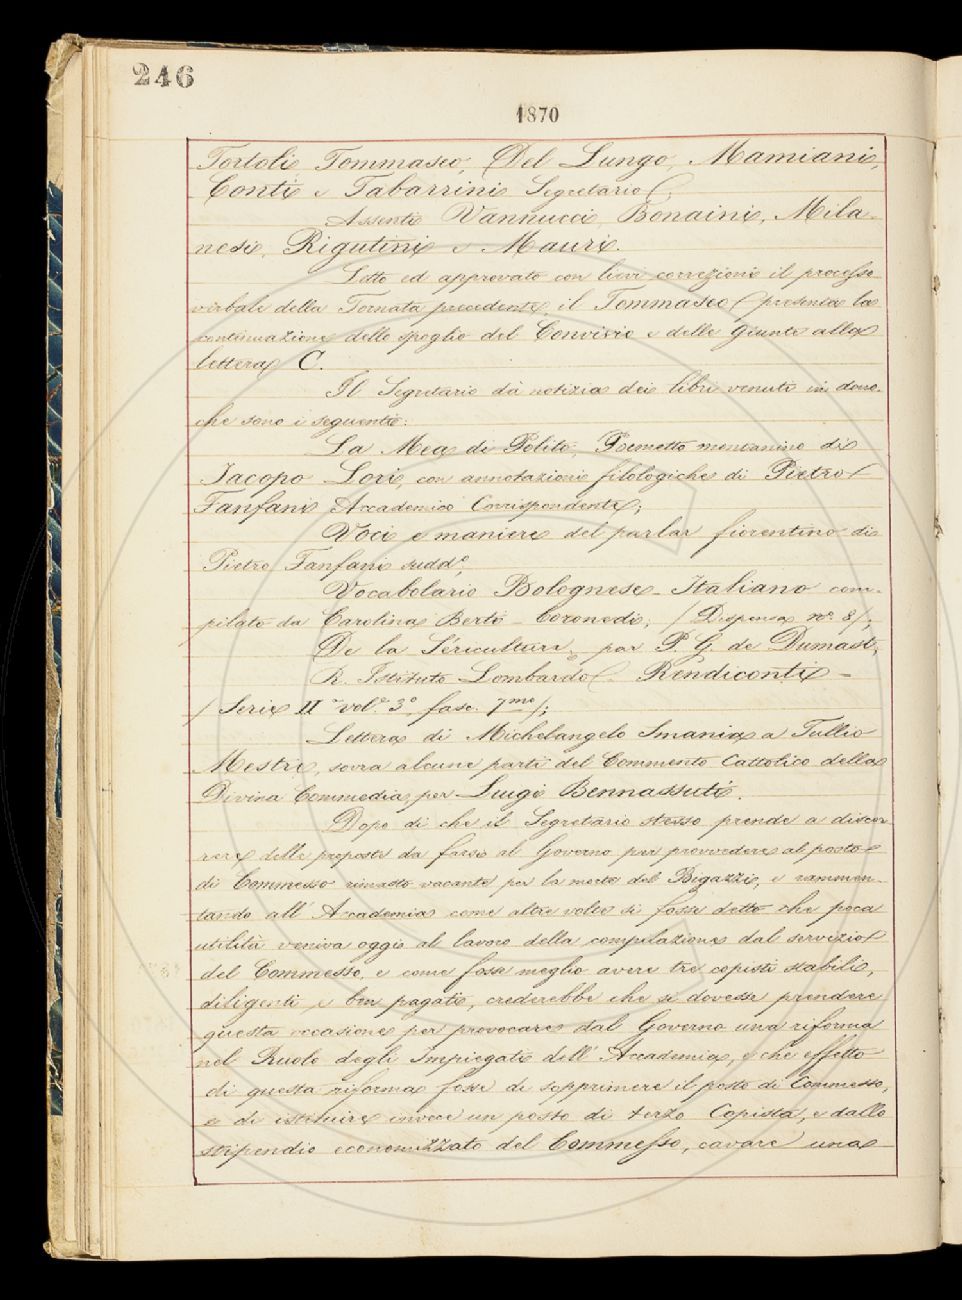 246
1870
Tortoli, Tommaseo, Del Lungo, Mamiani,
Conti e Tabarrini Segretario.
Assenti Vannucci, Bonaini, Mila-
nesi, Rigutini e Mauri.
Letto ed approvato con lievi correzioni il processo
verbale della Tornata precedente, il Tommaseo presenta la
continuazione dello spoglio del Convivio e delle Giunte alla
lettera C.
Il Segretario dà notizia dei libri venuti in dono,
che sono i seguenti:
La Mea di Polito, Poemetto montanino di
Jacopo Lori, con annotazioni filologiche di Pietro
Fanfani Accademico Corrispondente;
Voci e maniere del parlar fiorentino di
Pietro Fanfani sudd.º;
Vocabolario Bolognese-Italiano com-
pilato da Carolina Berti-Coronedi; /Dispensa nº 8/;
De la Sériculture, par P. G. de Dumast;
R. Istituto Lombardo. Rendiconti -
/Serie II vol.º 3º fasc. 7mo/;
Lettera di Michelangelo Smania a Tullio
Mestri, sovra alcune parti del Commento Cattolico della
Divina Commedia, per Luigi Bennassuti.
Dopo di che il Segretario stesso prende a discor
rere delle proposte da farsi al Governo per provvedere al posto
di Commesso rimasto vacante per la morte del Bigazzi, e rammen-
tando all' Accademia come altre volte si fosse detto che poca
utilità veniva oggi al lavoro della compilazione dal servizio
del Commesso, e come fosse meglio avere tre copisti stabili,
diligenti e ben pagati, crederebbe che si dovesse prendere
questa occasione per provocare dal Governo una riforma
nel Ruolo degli Impiegati dell' Accademia, e che effetto
di questa riforma fosse di sopprimere il posto di Commesso,
e di istituire invece un posto di terzo Copista, e dallo
stipendio economizzato del Commesso, cavare una